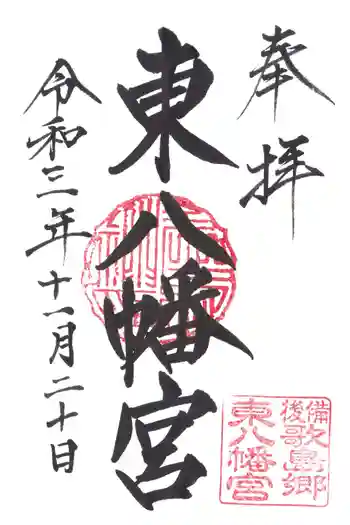 奉拝
東八幡宮
令和三年十一月二十日
備後歌島郷
東八幡宮